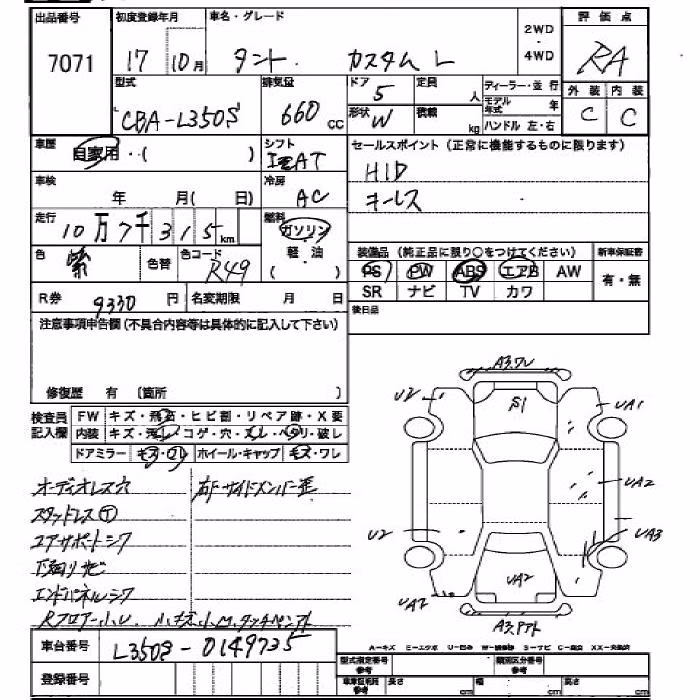 出品番号 初度登録年月 車名・グレード 2WD・4WD 評価点
7071 17 10月 タント カスタム L RA
型式 排気量 ドア 定員 ディーラー・並行 外装 内装
CBA-L350S 660cc 5 人 モデル年式 年 C C
形状 W 積載 kg ハンドル 左・右
車歴 自家用・( ) シフト セールスポイント(正常に機能するものに限ります)
AT HID
車検 年 月( 日) 冷房 AC キーレス
走行 10万7千315km 燃料 ガソリン
軽・油
( )
色 紫 色替 色コード R49 装備品(純正品に限り○をつけてください) 新車保証書
PS PW ABS エアB AW 有・無
SR ナビ TV カワ
R券 9330円 名変期限 月 日 後日品
注意事項申告欄(不具合内容等は具体的に記入して下さい)
修復歴 有 〔箇所 〕
検査員記入欄 FW キズ・飛石・ヒビ割・リペア跡・X要
内装 キズ・汚レ・コゲ・穴・スレ・ヘタリ・破レ
ドアミラー キズ・ワレ ホイール・キャップ キズ・ワレ
オーディオレス穴 右Fサイドメンバー歪
スタッドレス
コアサポートシワ
下回りサビ
エンドパネルシワ
Rフロア小U
A3.ワレ
U2 S1 UA1
UA2
U2 UA3
UA2 UA2
車台番号 L350S-0149735
登録番号
A-キズ E-エクボ U-凹み W-補修跡 S-サビ C-腐食 XX-交換済
型式指定番号 参考 類別区分番号 参考
車車証明用 参考 長さ cm 幅 cm 高さ cm